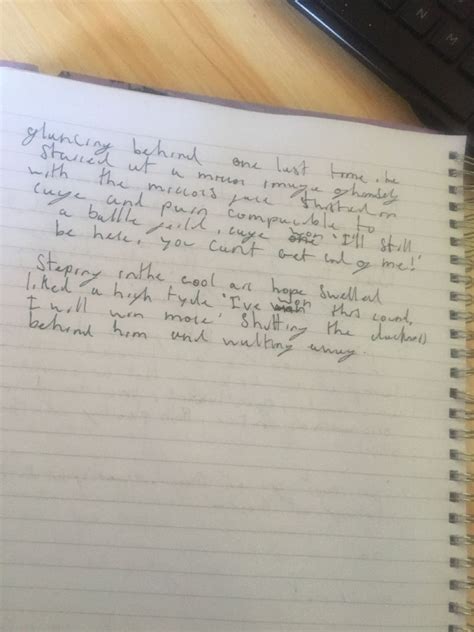 glancing behind one last time, he
stared at a mirror image of himself
with the mirrors face twisted in
rage and pain compairible to
a battle feild, rage won 'I'll still
be here, you cant get rid of me!'
Steping in the cool air hope swelled
liked a high tyde 'I've won this round,
I will win more.' Shutting the darkness
behind him and walking away.
N
M